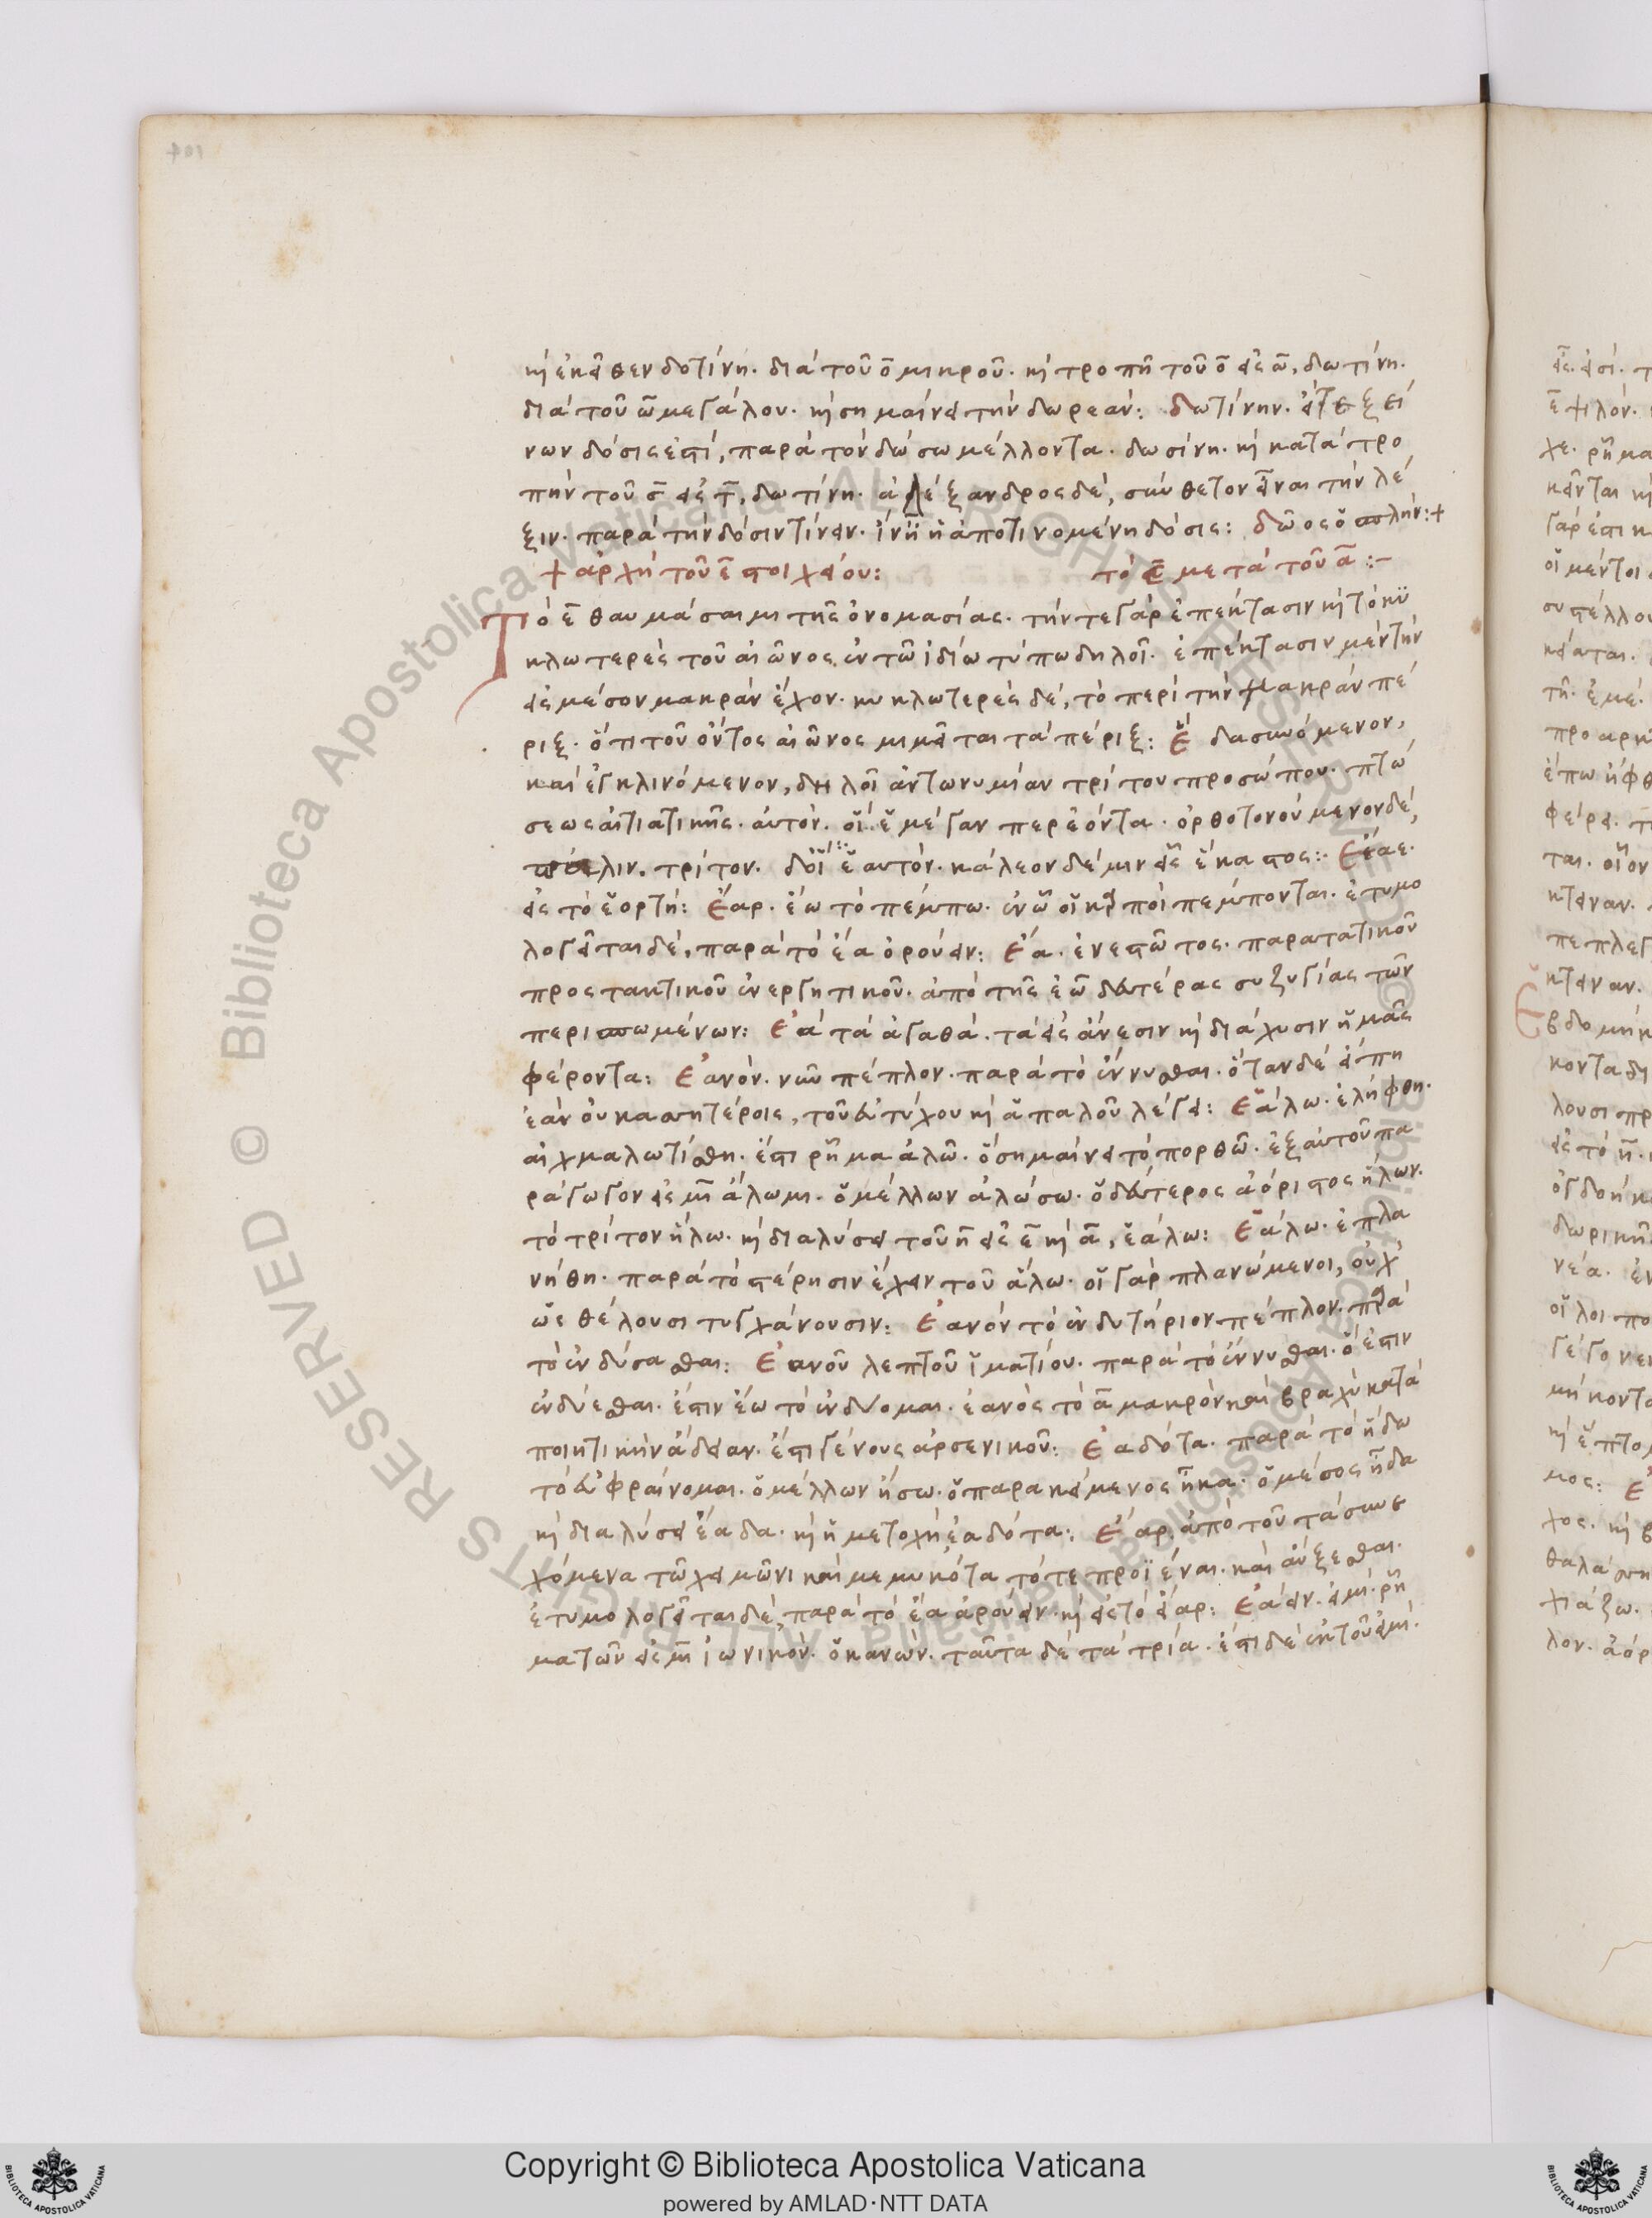 καὶ ἐκεῖθεν δοτίνη. διὰ τοῦ ο μικροῦ. καὶ τροπῆ τοῦ ο εἰς ω, δωτίνη.
διὰ τοῦ ω μεγάλου. καὶ σημαίνει τὴν δωρεάν: δωτίνην.
νων δόσις ἐστί, παρὰ τὸν δώσω μέλλοντα. δωσίνη. καὶ κατὰ τρο
πὴν τοῦ σ εἰς τ, δωτίνη. ἀλέξανδρος δέ, σύνθετον εἶναι τὴν λέ
ξιν. παρὰ τὴν δόσιν τίνειν. ἵν' ἦ ἡ ἀποτινομένη δόσις: δῶ ὃς ὁ
+ ἀρχὴ τοῦ ε στοιχείου: τὸ ε μετὰ τοῦ α :-
Τὸ ε θαυμάσαιμι τῆς ὀνομασίας. τήν τε γὰρ ἐπέκτασιν καὶ τὸ κυ
κλωτερὲς τοῦ αἰῶνος ἐν τῶ ἰδίω τύπω δηλοῖ. ἐπέκτασιν μὲν τὴν
εἰς μέσον μακρὰν ἔχον. κυκλωτερὲς δέ, τὸ περὶ τὴν μακρὰν πέ
ριξ. ὅτι τοῦ ὄντος αἰῶνος μιμεῖται τὰ πέριξ: Ἕ δασυνόμενον,
καὶ ἐγκλινόμενον, δηλοῖ ἀντωνυμίαν τρίτου προσώπου. πτώ
σεως αἰτιατικῆς. αὐτόν. οἵ ἑ μέγαν περ ἐόντα. ὀρθοτονούμενον δέ,
πάλιν. τρίτον. ἑαυτόν. κάλεόν δέ μιν εἰς ἓ ἕκαστος: Ἔαε.
εἰς τὸ ἑορτή: Ἔαρ. ἕω τὸ πέμπω. ἐν ὧ οἱ καρποὶ πέμπονται. ἐτυμο
λογεῖται δέ, παρὰ τὸ ἔα ὀρούειν: Ἔα. ἐνεστῶτος. παρατατικοῦ
προστακτικοῦ ἐνεργητικοῦ. ἀπὸ τῆς ἐῶ δευτέρας συζυγίας τῶν
περισπωμένων: Ἐὰ τὰ ἀγαθά. τὰ εἰς ἄνεσιν καὶ διάχυσιν ἡμᾶς
φέροντα: Ἐανόν. νῦν πέπλον. παρὰ τὸ ἕννυσθαι. ὅταν δὲ εἴπη
ἑανοῦ κασσιτέροιο, τοῦ εὐτύχου καὶ ἁπαλοῦ λέγει: Ἑάλω. ἐλήφθη.
αἰχμαλωτίσθη. ἔστι ῥῆμα ἁλῶ. ὃ σημαίνει τὸ πορθῶ. ἐξ αὐτοῦ πα
ράγωγον εἰς μι ἅλωμι. ὁ μέλλων ἁλώσω. ὁ δεύτερος ἀόριστος ἥλων.
τὸ τρίτον ἥλω. καὶ διαλύσει τοῦ η εἰς ε καὶ α, ἑάλω: Ἑάλω. ἐπλα
νήθη. παρὰ τὸ στέρησιν ἔχειν τοῦ ἅλω. οἱ γὰρ πλανώμενοι, οὐχ
ὡς θέλουσι τυγχάνουσιν: Ἐανὸν τὸ ἐνδυτήριον πέπλον. παρὰ
τὸ ἐνδύσασθαι: Ἐανοῦ λεπτοῦ ἱματίου. παρὰ τὸ ἕννυσθαι. ὅ ἐστιν
ἐνδύεσθαι. ἔστιν ἕω τὸ ἐνδύομαι. ἑανὸς τὸ α μακρὸν καὶ βραχὺ κατὰ
ποιητικὴν ἄδειαν. ἔστι γένους ἀρσενικοῦ: Ἐαδότα. παρὰ τὸ ἥδω
τὸ εὐφραίνομαι. ὁ μέλλων ἥσω. ὁ παρακείμενος ἧκα. ὁ μέσος ἧδα
καὶ διαλύσει ἕαδα. καὶ ἡ μετοχὴ ἑαδότα: Ἔαρ. ἀπὸ τοῦ τὰ συνε
χόμενα τῶ χειμῶνι καὶ μεμυκότα τότε προϊέναι. καὶ αὔξεσθαι.
ἐτυμολογεῖται δὲ παρὰ τὸ ἔα ἀρούειν. καὶ εἰς τὸ εἶαρ: Ἐάειν. εἰμί. ῥη
μάτων εἰς μι ἰωνικόν. ὁ κανών. ταῦτα δὲ τὰ τρία. ἔστι δὲ ἐκ τοῦ εἰμί.